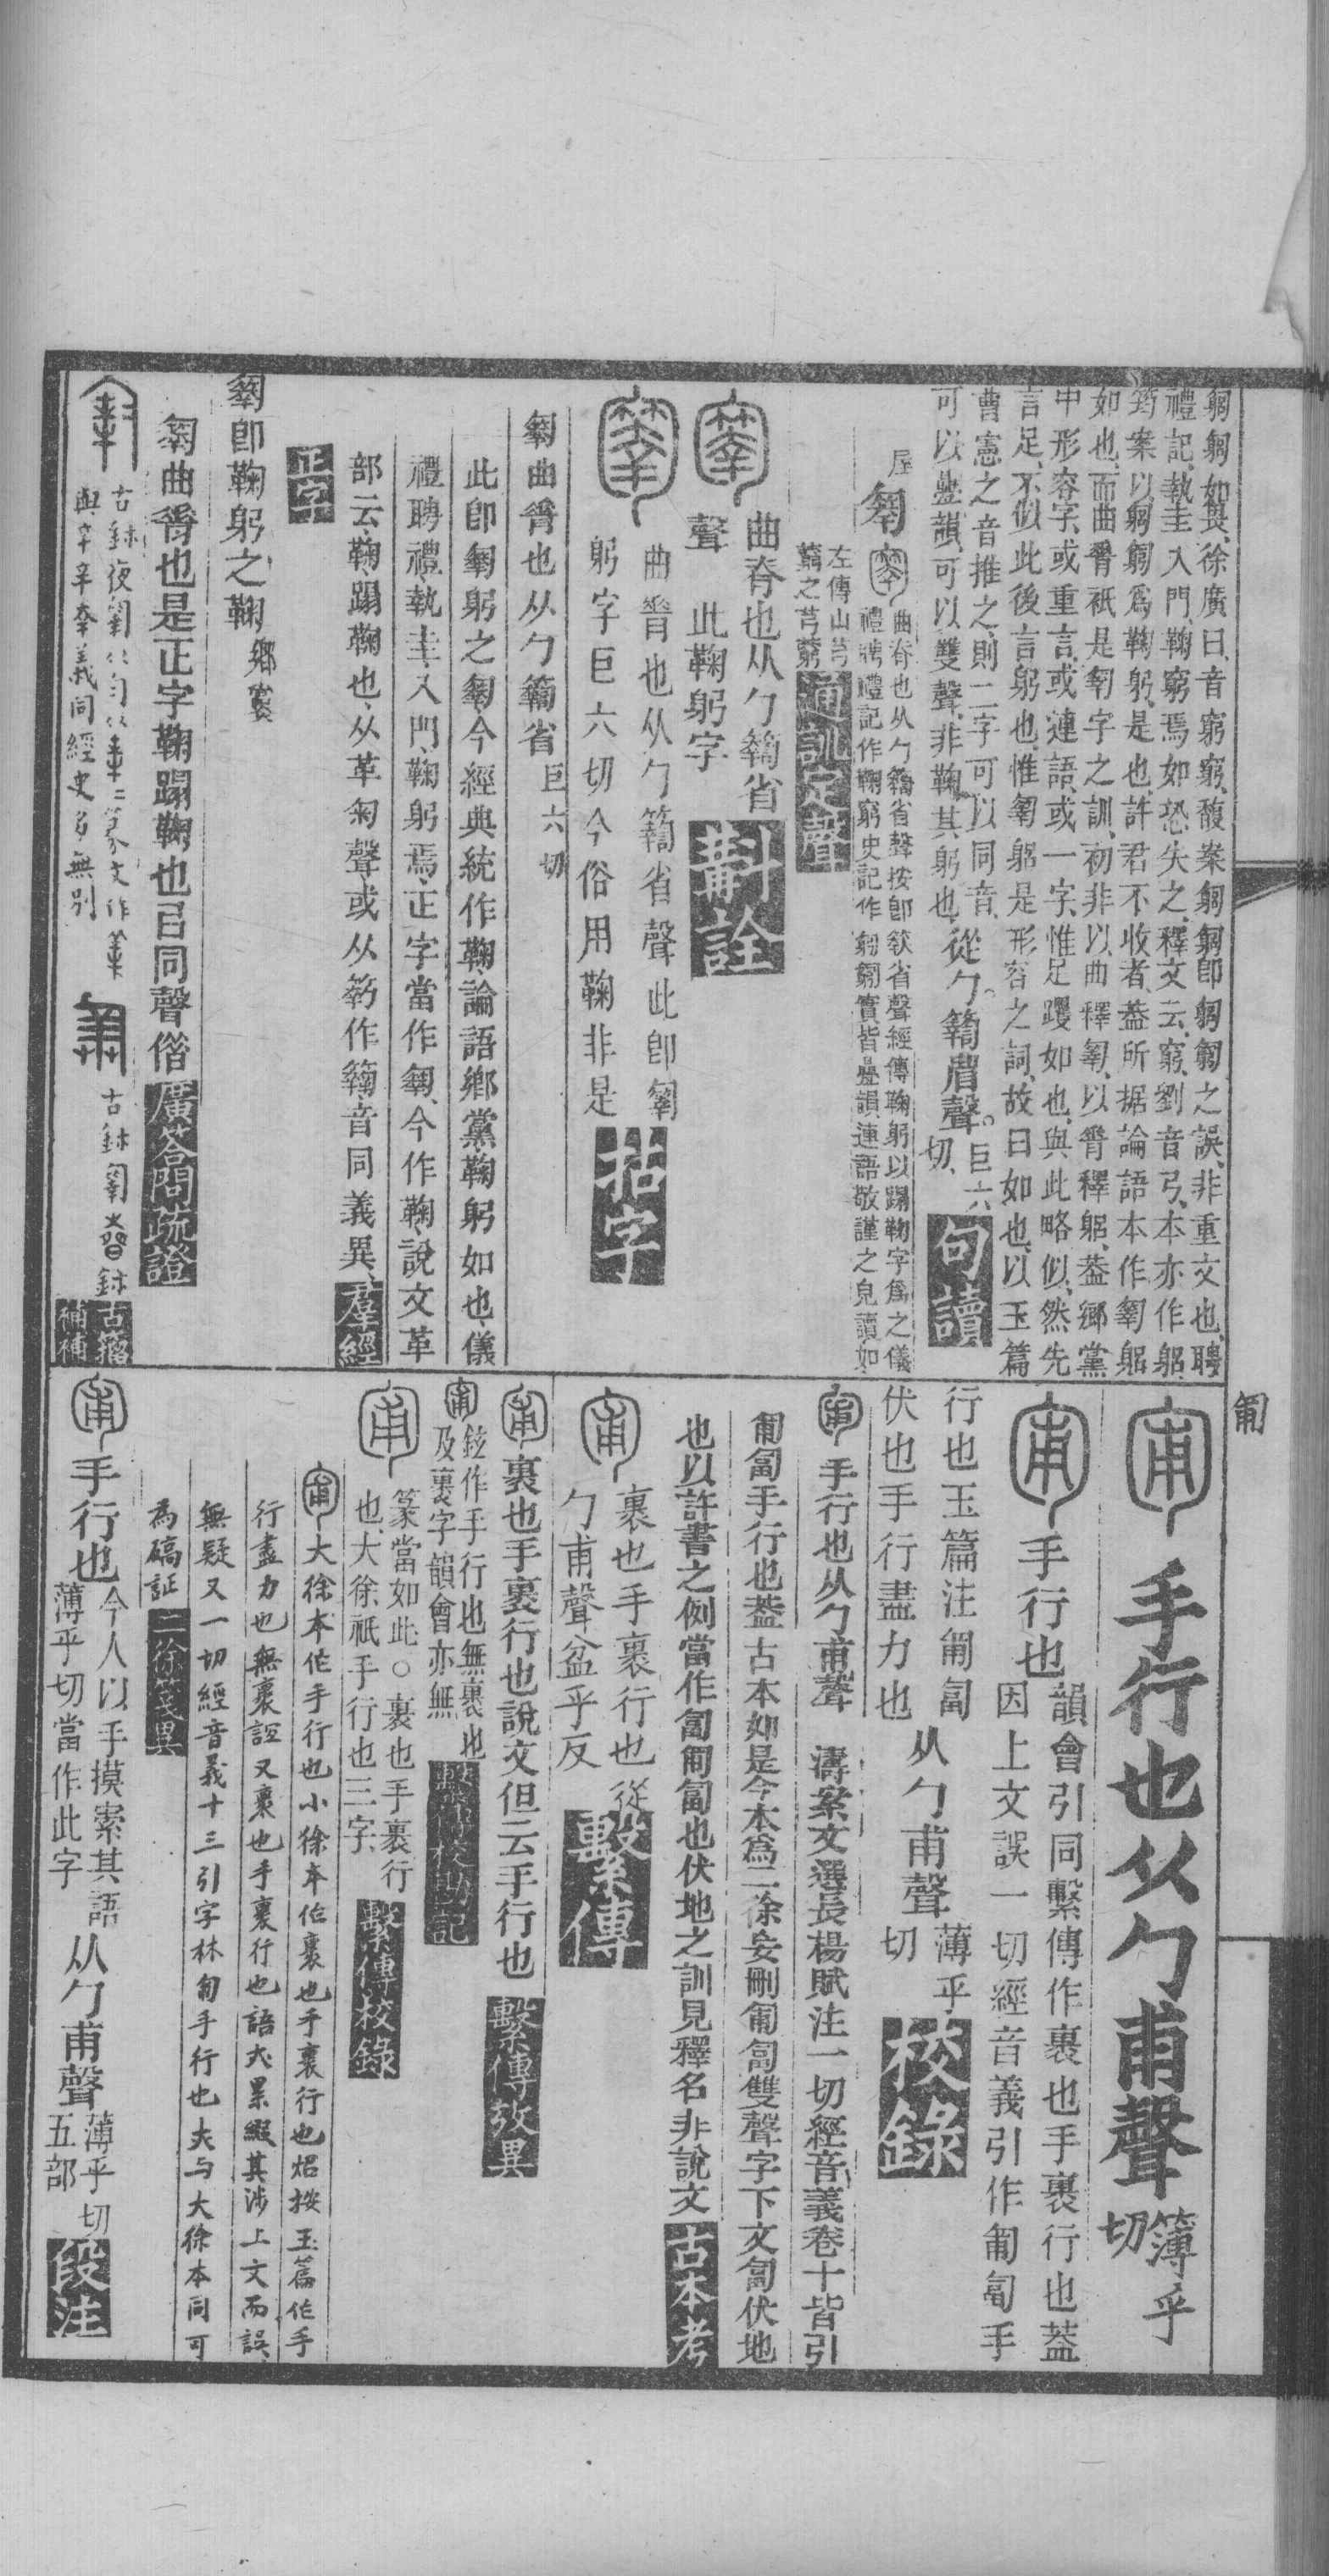 匍
匔匔如畏、徐廣曰、音窮窮、馥案匔匔卽匑匑之誤、非重文也、聘
禮記、執圭入門、鞠窮焉如恐失之、釋文云、窮、劉音弓、本亦作躬、
筠案、以匔匑爲鞠躬、是也、許君不收者、葢所据論語本作匑躬
如也、而曲脊祇是匑字之訓、初非以曲釋匑、以脊釋躬、葢鄉黨
中形容字、或重言、或連語、或一字、惟足躩如也、與此略似、然先
言足、不似此後言躬也、惟匑躬是形容之詞、故曰如也、以玉篇
曹憲之音推之、則二字可以同音、從勹。𥷚省聲。巨六
可以疊韻、可以雙聲、非鞠其躬也、切、句讀
屋 曲脊也从勹𥷚省聲按卽
禮聘禮記作鞠窮史記作匔匔實皆疊韻連語敬謹之皃讀如
左傳山芎
藭之芎藭 通訓定聲
曲脊也从勹𥷚省
聲 此鞠躬字 斠詮
曲脊也从勹𥷚省聲此卽匑
躬字巨六切今俗用鞠非是 拈字
匑曲脊也从勹𥷚省 巨六切
此卽匑躬之匑、今經典統作鞠、論語鄉黨、鞠躬如也、儀
禮聘禮、執圭、入門、鞠躬焉、正字當作匑、今作鞠、說文革
部云、鞠蹋鞠也、从革匊聲或从𥷚作、音同義異、羣經
正字
匑卽鞠躬之鞠 鄉黨
匑曲脊也是正字鞠蹋鞠也㠯同聲借 廣荅問疏證
義同經史多無別
古鉨
古籀
補補
手行也从勹甫聲 簿乎
切
手行也 韻會引同繫傳作裹也手裹行也葢
因上文誤一切經音義引作匍匐手
行也玉篇注匍匐
伏也手行盡力也 从勹甫聲 薄乎
切 校錄
手行也从勹甫聲 濤案文選長楊賦注一切經音義卷十皆引
匍匐手行也葢古本如是今本爲二徐妄刪匍匐雙聲字下文匐伏地
也以許書之例當作匐匍匐也伏地之訓見釋名非說文 古本考
裹也手裹行也從
勹甫聲盆乎反 繫傳
裹也手裹行也說文但云手行也 繫傳攷異
鉉作手行也無裹也
及裹字韻會亦無 繫傳校勘記
篆當如此○裹也手裹行
也、大徐祇手行也三字、 繫傳校錄
大徐本作手行也小徐本作裹也手裹行也炤按玉篇作手
行盡力也無裹誼又裹也手裹行也語大累綴其涉上文而誤、
無疑又一切經音義十三引字林匍手行也夫与大徐本同可
為碻証 二徐箋異
手行也 今人以手摸索其語
薄乎切當作此字 从勹甫聲 薄乎切
五部 段注